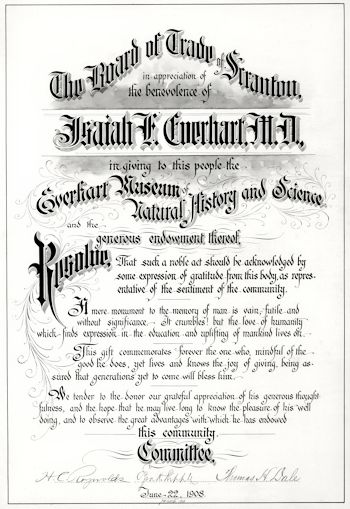 The Board of Trade of Scranton,
in appreciation of
the benevolence of
Isaiah F. Everhart, M.D.,
in giving to this people the
Everhart Museum of
Natural History and Science
and the
generous endowment thereof,
Resolve, That such a noble act should be acknowledged by
some expression of gratitude from this body, as repres-
entative of the sentiment of the community.
A mere monument to the memory of man is vain, futile and
without significance. It crumbles! but the love of humanity
which finds expression in the education and uplifting of mankind lives on.
This gift commemorates forever the one who, mindful of the
good he does, yet lives and knows the joy of giving, being as-
sured that generations yet to come will bless him.
We tender to the donor our grateful appreciation of his generous thought
fulness, and the hope that he may live long to know the pleasure of his well
doing, and to observe the great advantages with which he has endowed
this community.
Committee,
H. C. Reynolds Thomas H. Dale
June 22, 1908.